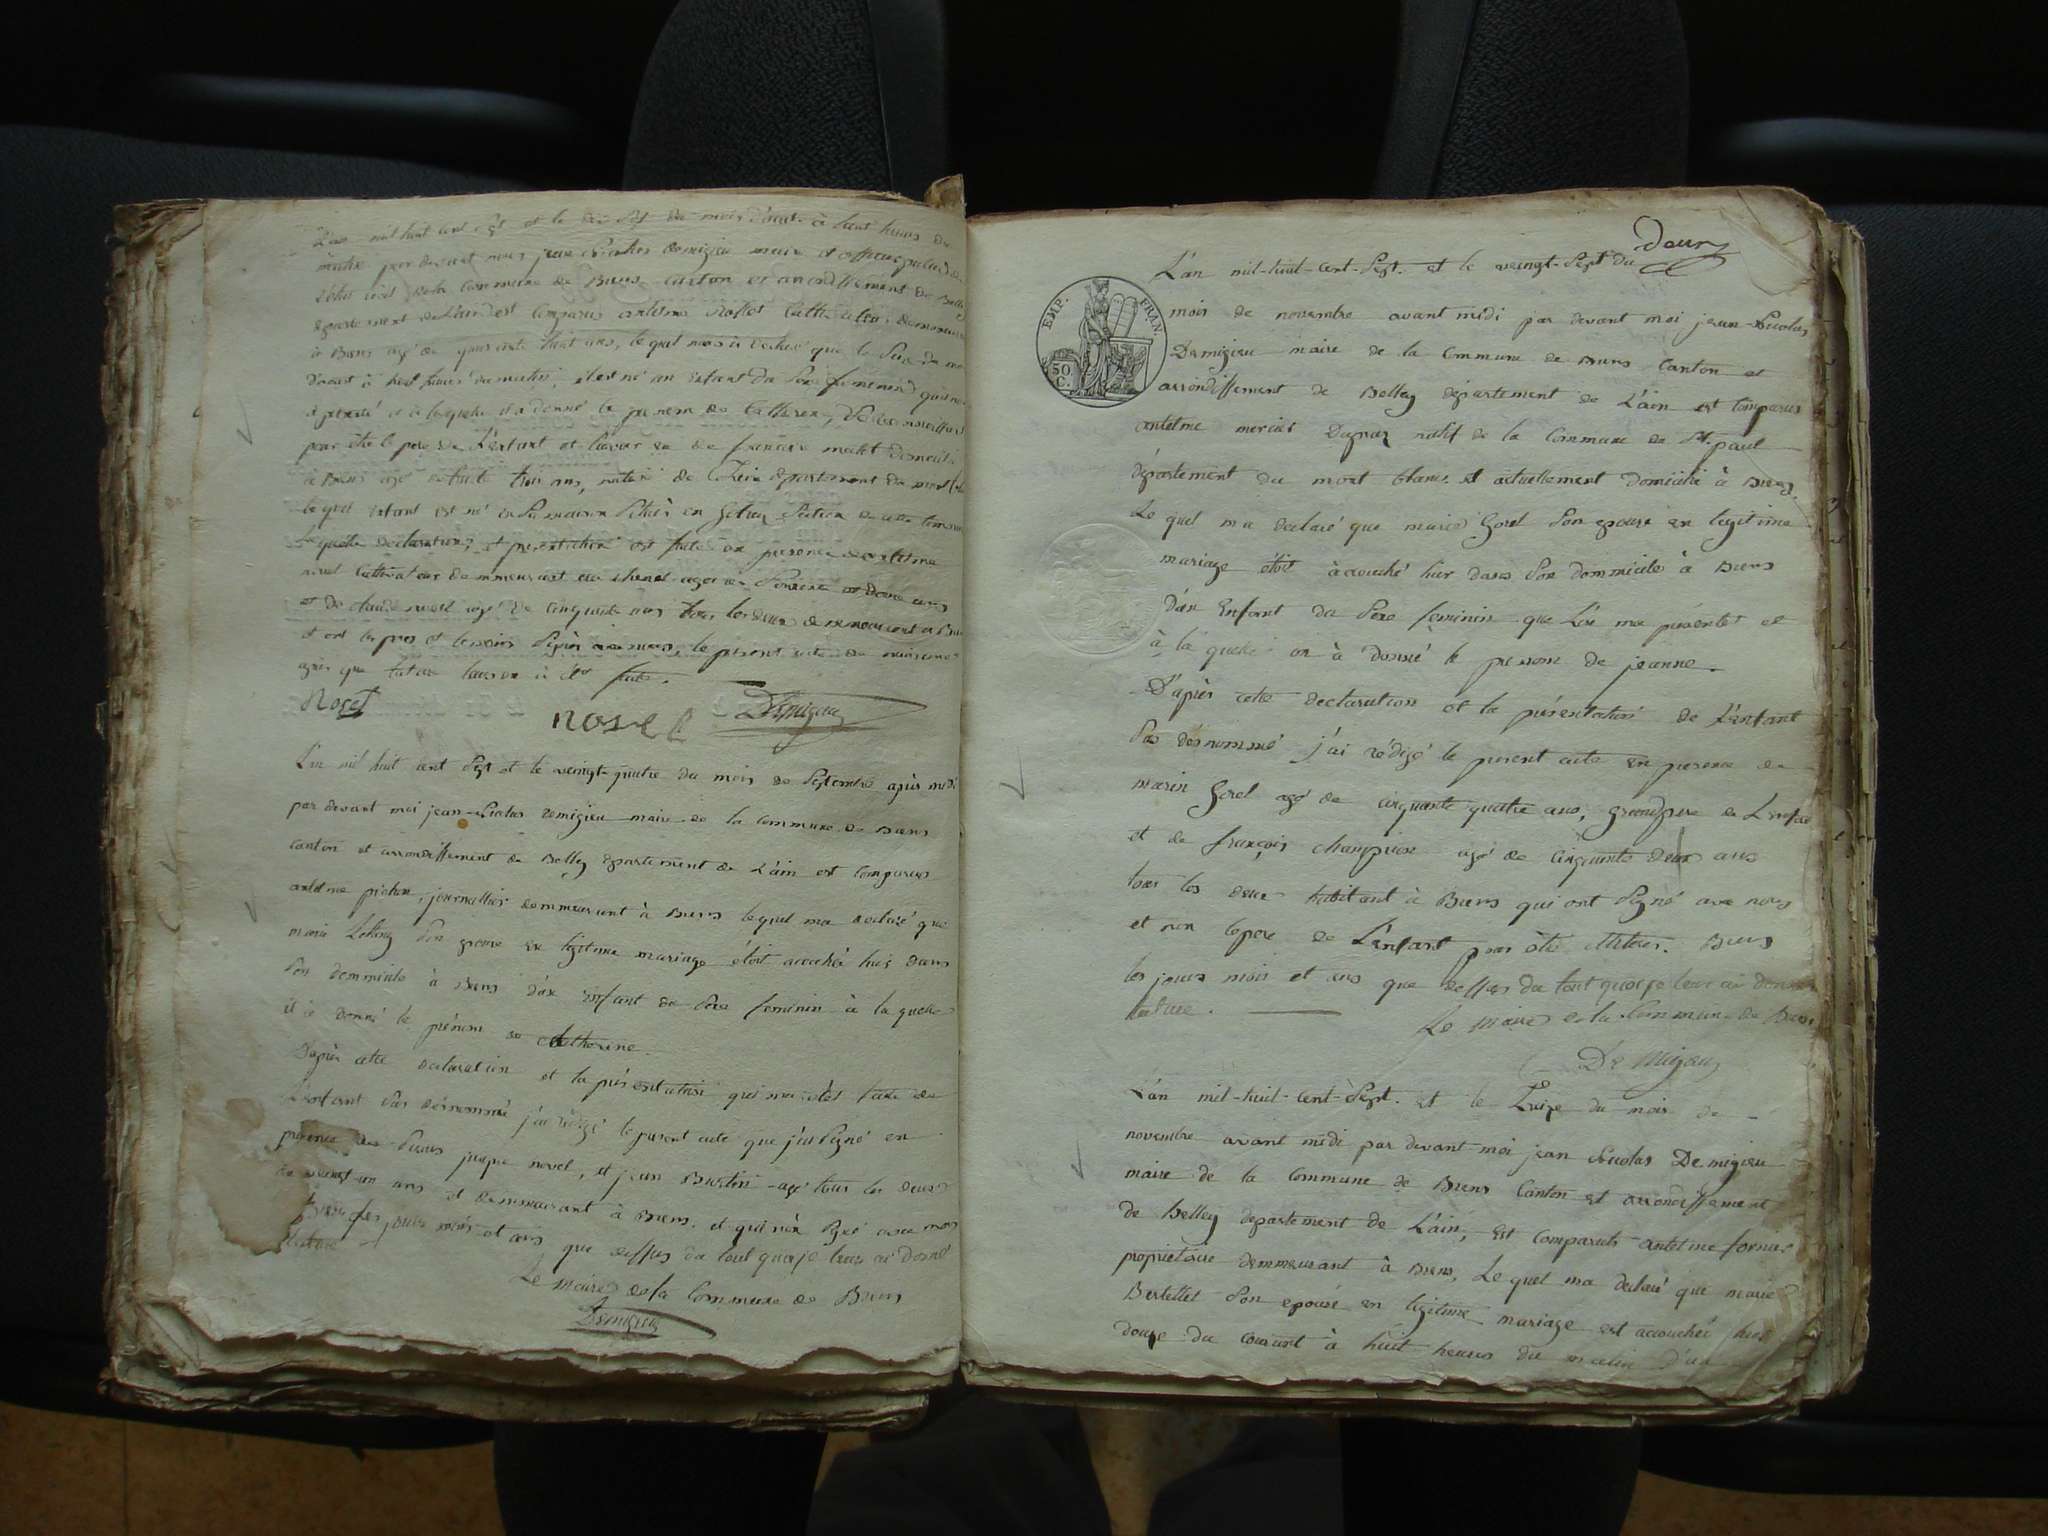 L'an mil huit cent sept et le dix sept du mois d'aout à huit heures du
matin par devant nous jean Nicolas demigieu maire et officier public de
l'état civil de la commune de Bièns canton et arrondissement de Belley
département de l'ain est comparus antelme Rosset cultivateur demeurant
à Bièns agé de quarante huit ans, le quel nous à déclaré que le
d'aout à huit heures du matin, il est né un enfant du sexe femenin qu'il nous
à présenté et à laquelle il a donné le prenom de Catherine,
pour être le père de l'enfant et l'avoir eu de françoise domicilié
à Bièns agé trente trois ans, native de département du mont
le quel enfant est né en sa maison située en section de cette commune
la quelle declaration et presentation est faite en presence de antelme
novel cultivateur demmeurant au agé de soixante et douze ans
et de claude novel agé de cinquante ans tous les deux demmeurant à Bièns
et ont les père et temoins signés avec nous le présent acte de naissance
après que lecture leur en à été faite.
Roset novel Demigieu
L'an mil huit cent sept et le veingt-quatre du mois de septembre après midi
par devant moi jean-Nicolas Demigieu maire de la commune de Bièns
canton et arrondissement de Belley département de L'ain est comparus
antelme pichon, journallier demmeurant à Bièns lequel ma declaré que
marie son epouse en légitime mariage étoit accouchée hier dans
son dommicile à Bièns d'un enfant du sexe feminin à la quelle
il à donné le prénom de Catherine.
D'après cette declaration et la présentation qui ma été faite de
L'enfant sus dénommé j'ai rédigé le present acte que j'ai signé en
présence des sieurs novel, et jean Burtin agé tous les deux
de veingt-un ans et demmeurant à Bièns, et qui n'on signé avec nous
Bièns les jours mois et ans que dessus du tout quoi je leur ai donné
lecture
Le maire de la commune de Bièns
Demigieu
deux
L'an mil-huit-cent-sept. et le veingt-sept du
mois de novembre avant midi par devant moi jean-Nicolas
Demigieu maire de la commune de Bièns Canton et
arrondissement de Belley département de L'ain est comparus
antelme mercier Dupraz natif de la commune de St. paul
département du mont blanc et actuellement domicilié à Bièns.
Le quel m'a declaré que marie Gorel son epouse en légitime
mariage étoit accouché hier dans son dommicile à Bièns
d'un Enfant du sexe feminin que l'on ma présenté et
à la quelle on à donné le prenom de jeanne.
D'après cette declaration et la présentation de L'enfant
sus dénommé j'ai rédigé le present acte en presence de
marin Gorel agé de cinquante quatre ans, grand père de L'enfant
et de françois champion agé de cinquante deux ans
tous les deux habitant à Bièns qui ont signé avec nous
et non le père de L'enfant pour être illitéré. Bièns
les jours mois et ans que dessus du tout quoi je leur ai donné
lecture.
Le maire de la Commune de Bièns
De Migieu
L'an mil-huit-cent-sept. et le treize du mois de
novembre avant midi par devant moi jean Nicolas Demigieu
maire de la commune de Bièns Canton et arrondissement
de Belley departement de L'ain, est comparut antelme fornier
proprietaire demmeurant à Bièns, Le quel ma declaré que marie
Bertettet son epouse en légitime mariage est accouchée hier
douze du courant à huit heures du matin d'un
EMP. FRAN.
50 C.